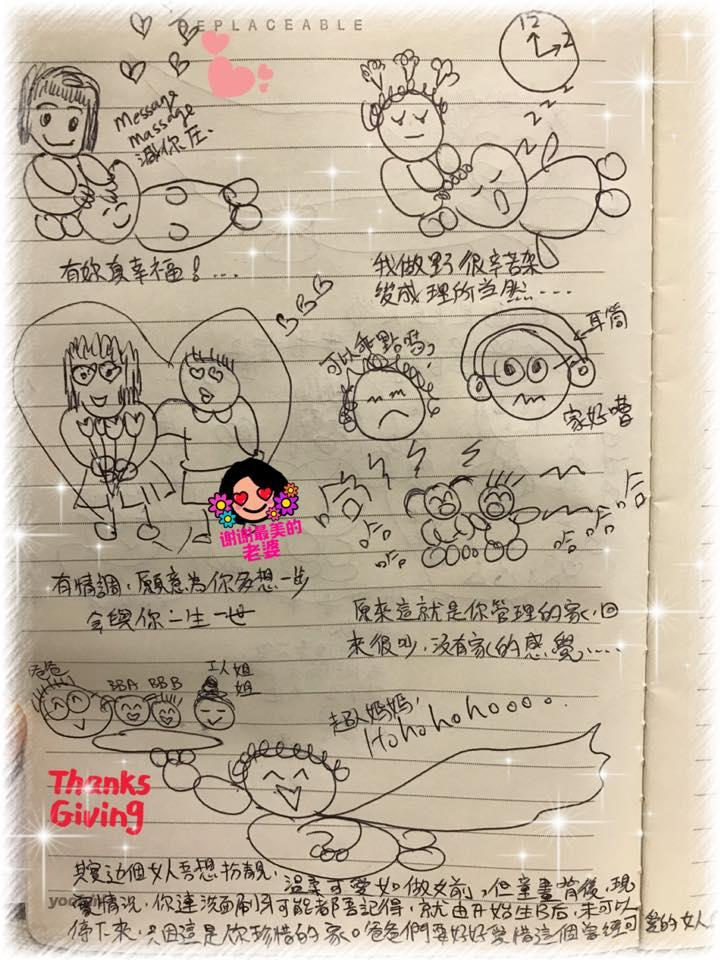 REPLACEABLE
12
2
Message
Massage
減你压
z z z z
有妳真幸福！...
我做野很辛苦架
變成理所当然....
BBB
可以乖點嗎，
耳筒
家好嘈
谢谢最美的
老婆
哈
哈哈
哈哈哈哈
有情調，願意為你多想一步
會與你一生一世
原來這就是你管理的家，回
來很吵，沒有家的感覺.....
爸爸
BBA BBB
工人姐
姐
超人媽媽，
Hohohohoooo..
Thanks
Giving
其實边個女人吾想扮靚，溫柔可愛如做女前，但童畫背後，現
實情況，你連洗面刷牙可能都吾記得，就由开始生B后，未可以
停下來，只因這是你珍惜的家。爸爸們要好好愛惜這個曾經可愛的女人